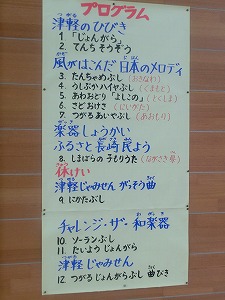 プログラム
津軽のひびき
1 「じょんがら」
2. てんちそうぞう
風がはこんだ 日本のメロディ
3. たんちゃめぶし (おきなわ)
4. うしぶかハイヤぶし (くまもと)
5. あわおどり「よしこの」(とくしま)
6. さどおけさ (にいがた)
7. つがるあいやぶし (あおもり)
楽器しょうかい
ふるさと長崎民よう
8. しまばらの子もりうた (ながさき県)
休けい
津軽じゃみせんがっそう曲
9. にかたぶし
チャレンジ・ザ・和楽器
10. ソーランぶし
11. たいようじょんがら
津軽じゃみせん
12. つがるじょんがらぶし 曲びき